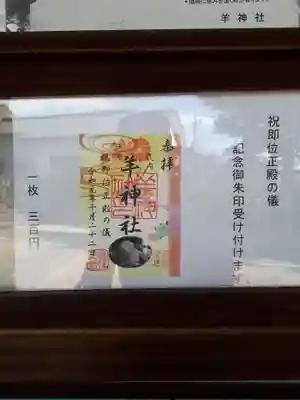 羊神社
祝即位正殿の儀
記念御朱印受け付けます
奉拝
羊神社
即位正殿の儀
令和元年十月二十二日
一枚 三百円